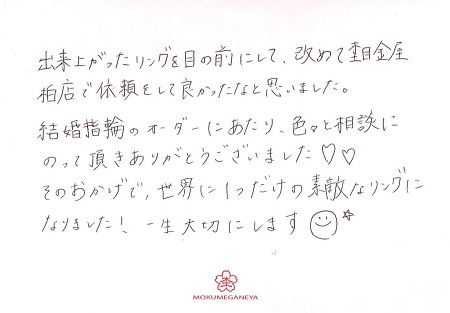 出来上がったリングを目の前にして、改めて杢目金屋
柏店で依頼をして良かったなと思いました。
結婚指輪のオーダーにあたり、色々と相談に
のって頂きありがとうございました♡♡
そのおかげで、世界に1つだけの素敵なリングに
なりました！一生大切にします
杢
MOKUMEGANEYA